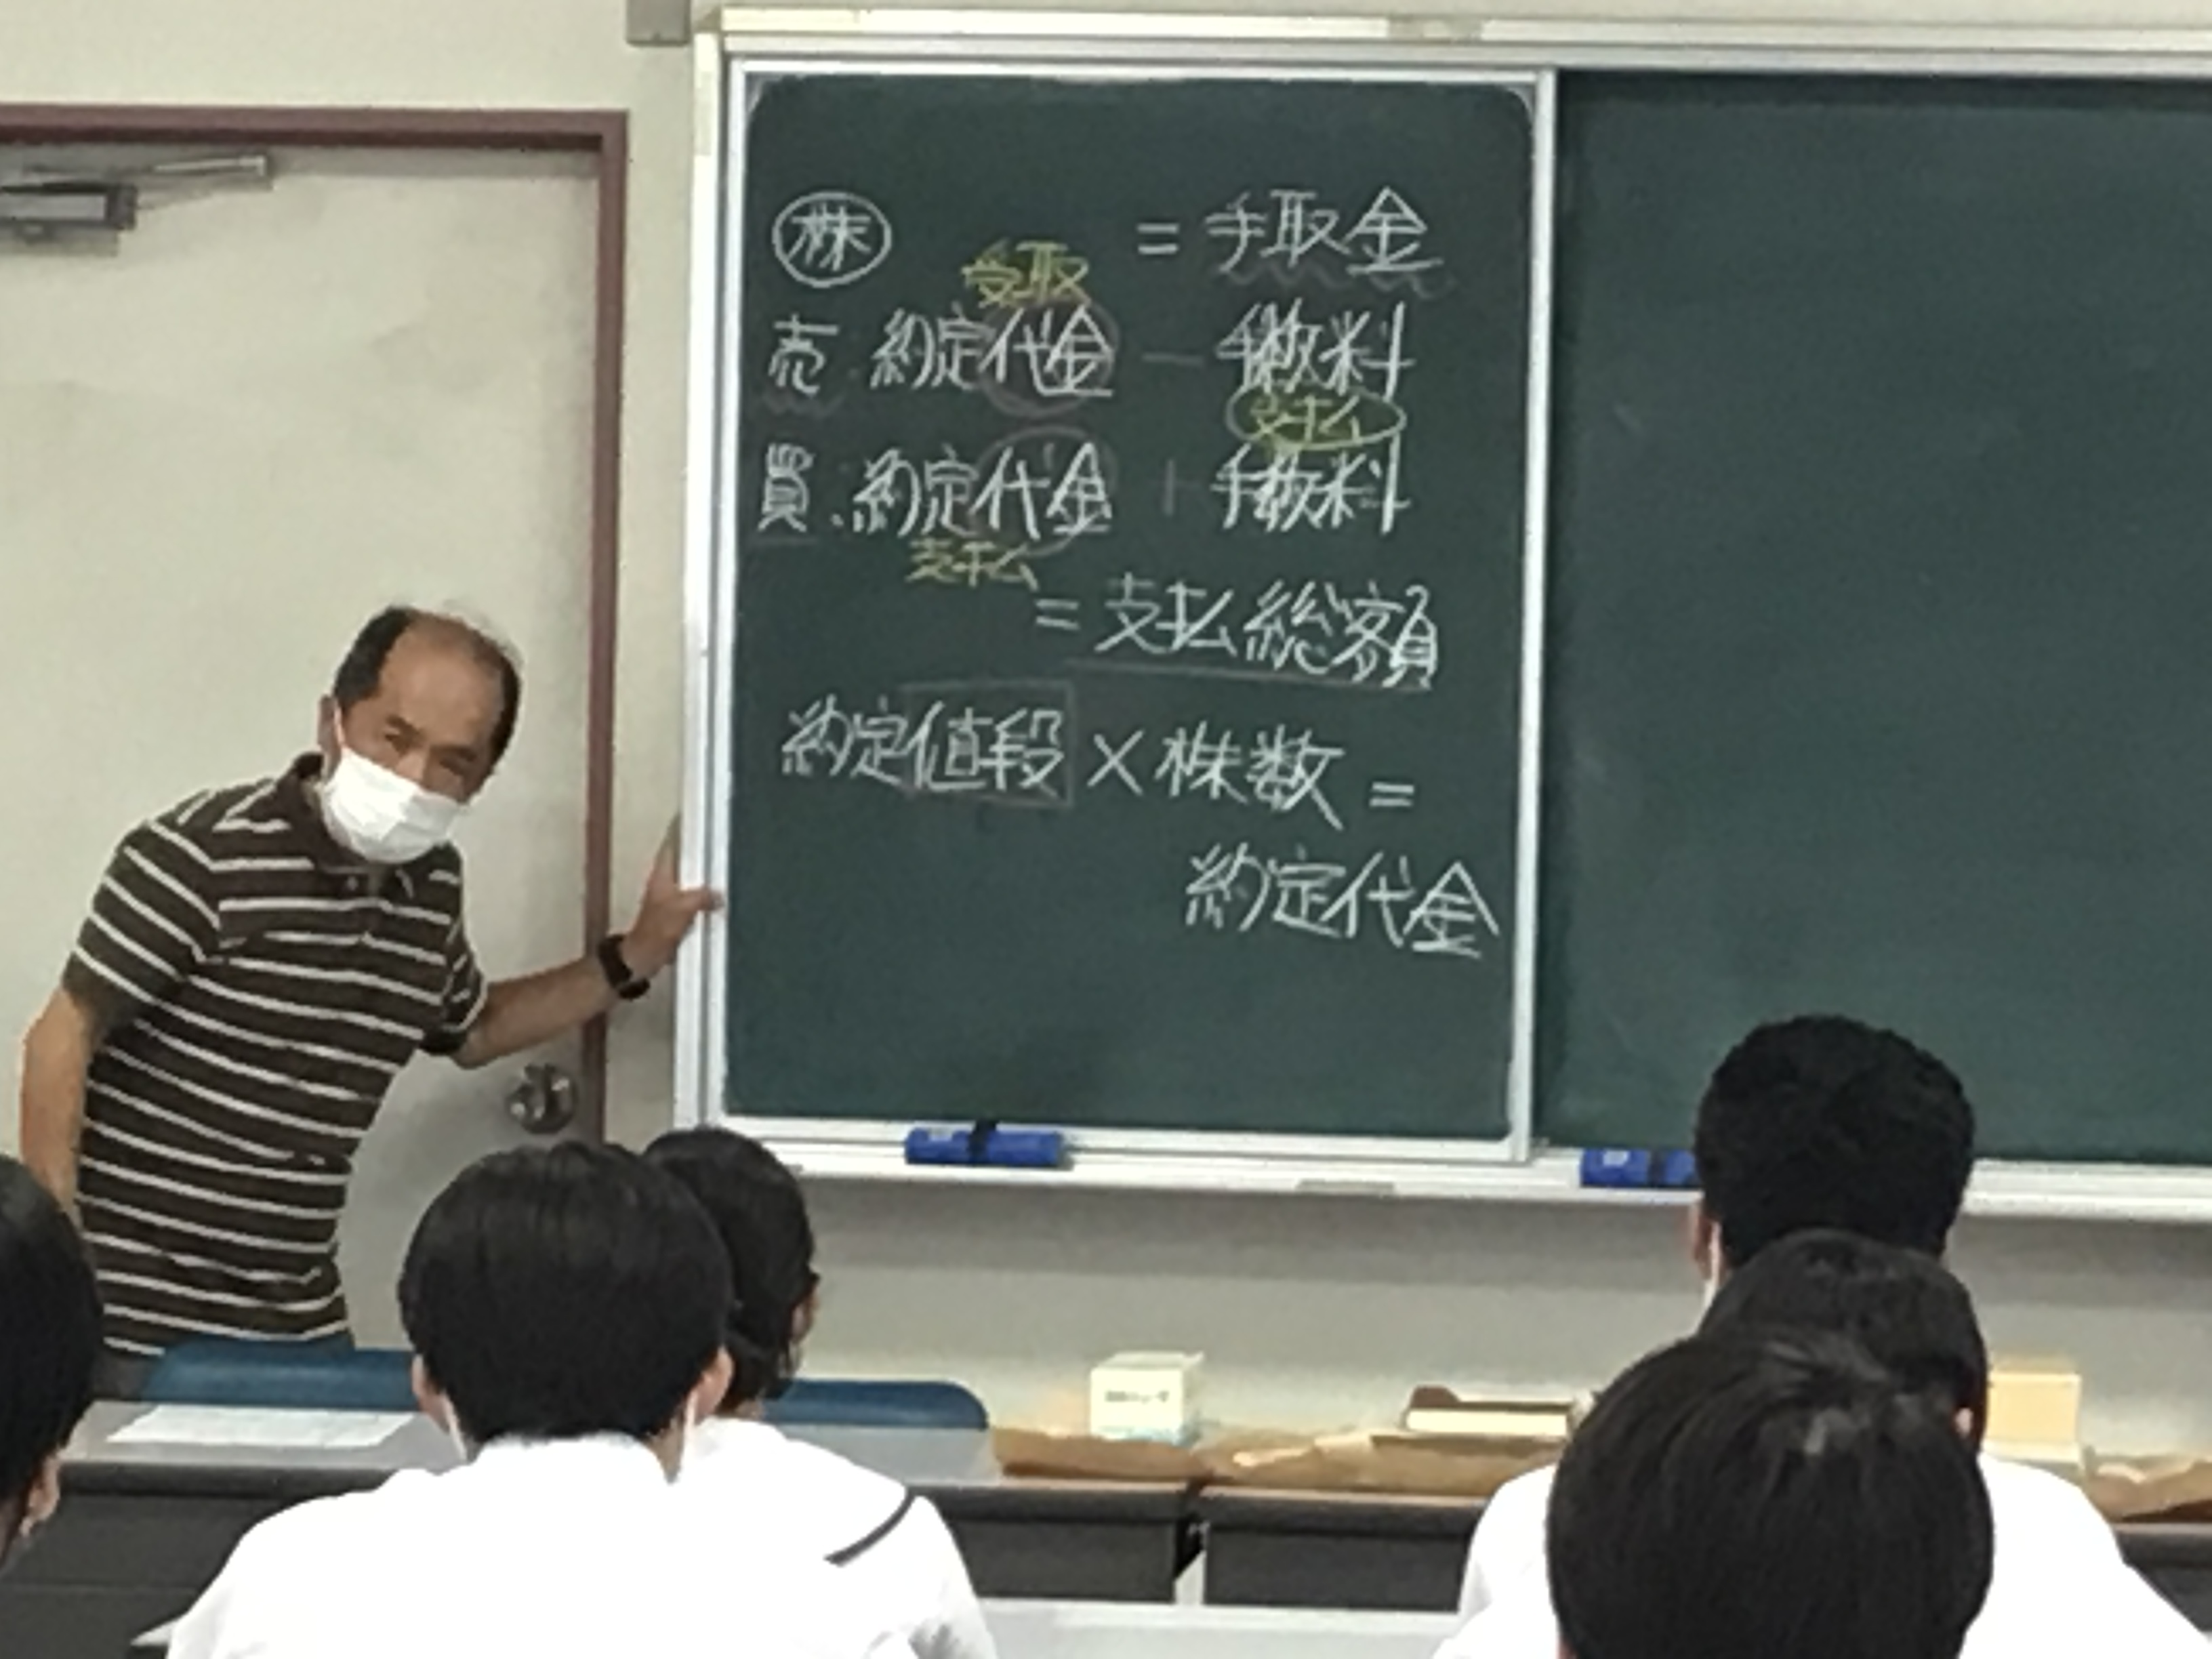 ㊑ = 手取金
受取
売 約定代金 − 手数料
支払
買. 約定代金 + 手数料
支払
= 支払総額
約定値段 × 株数 =
約定代金